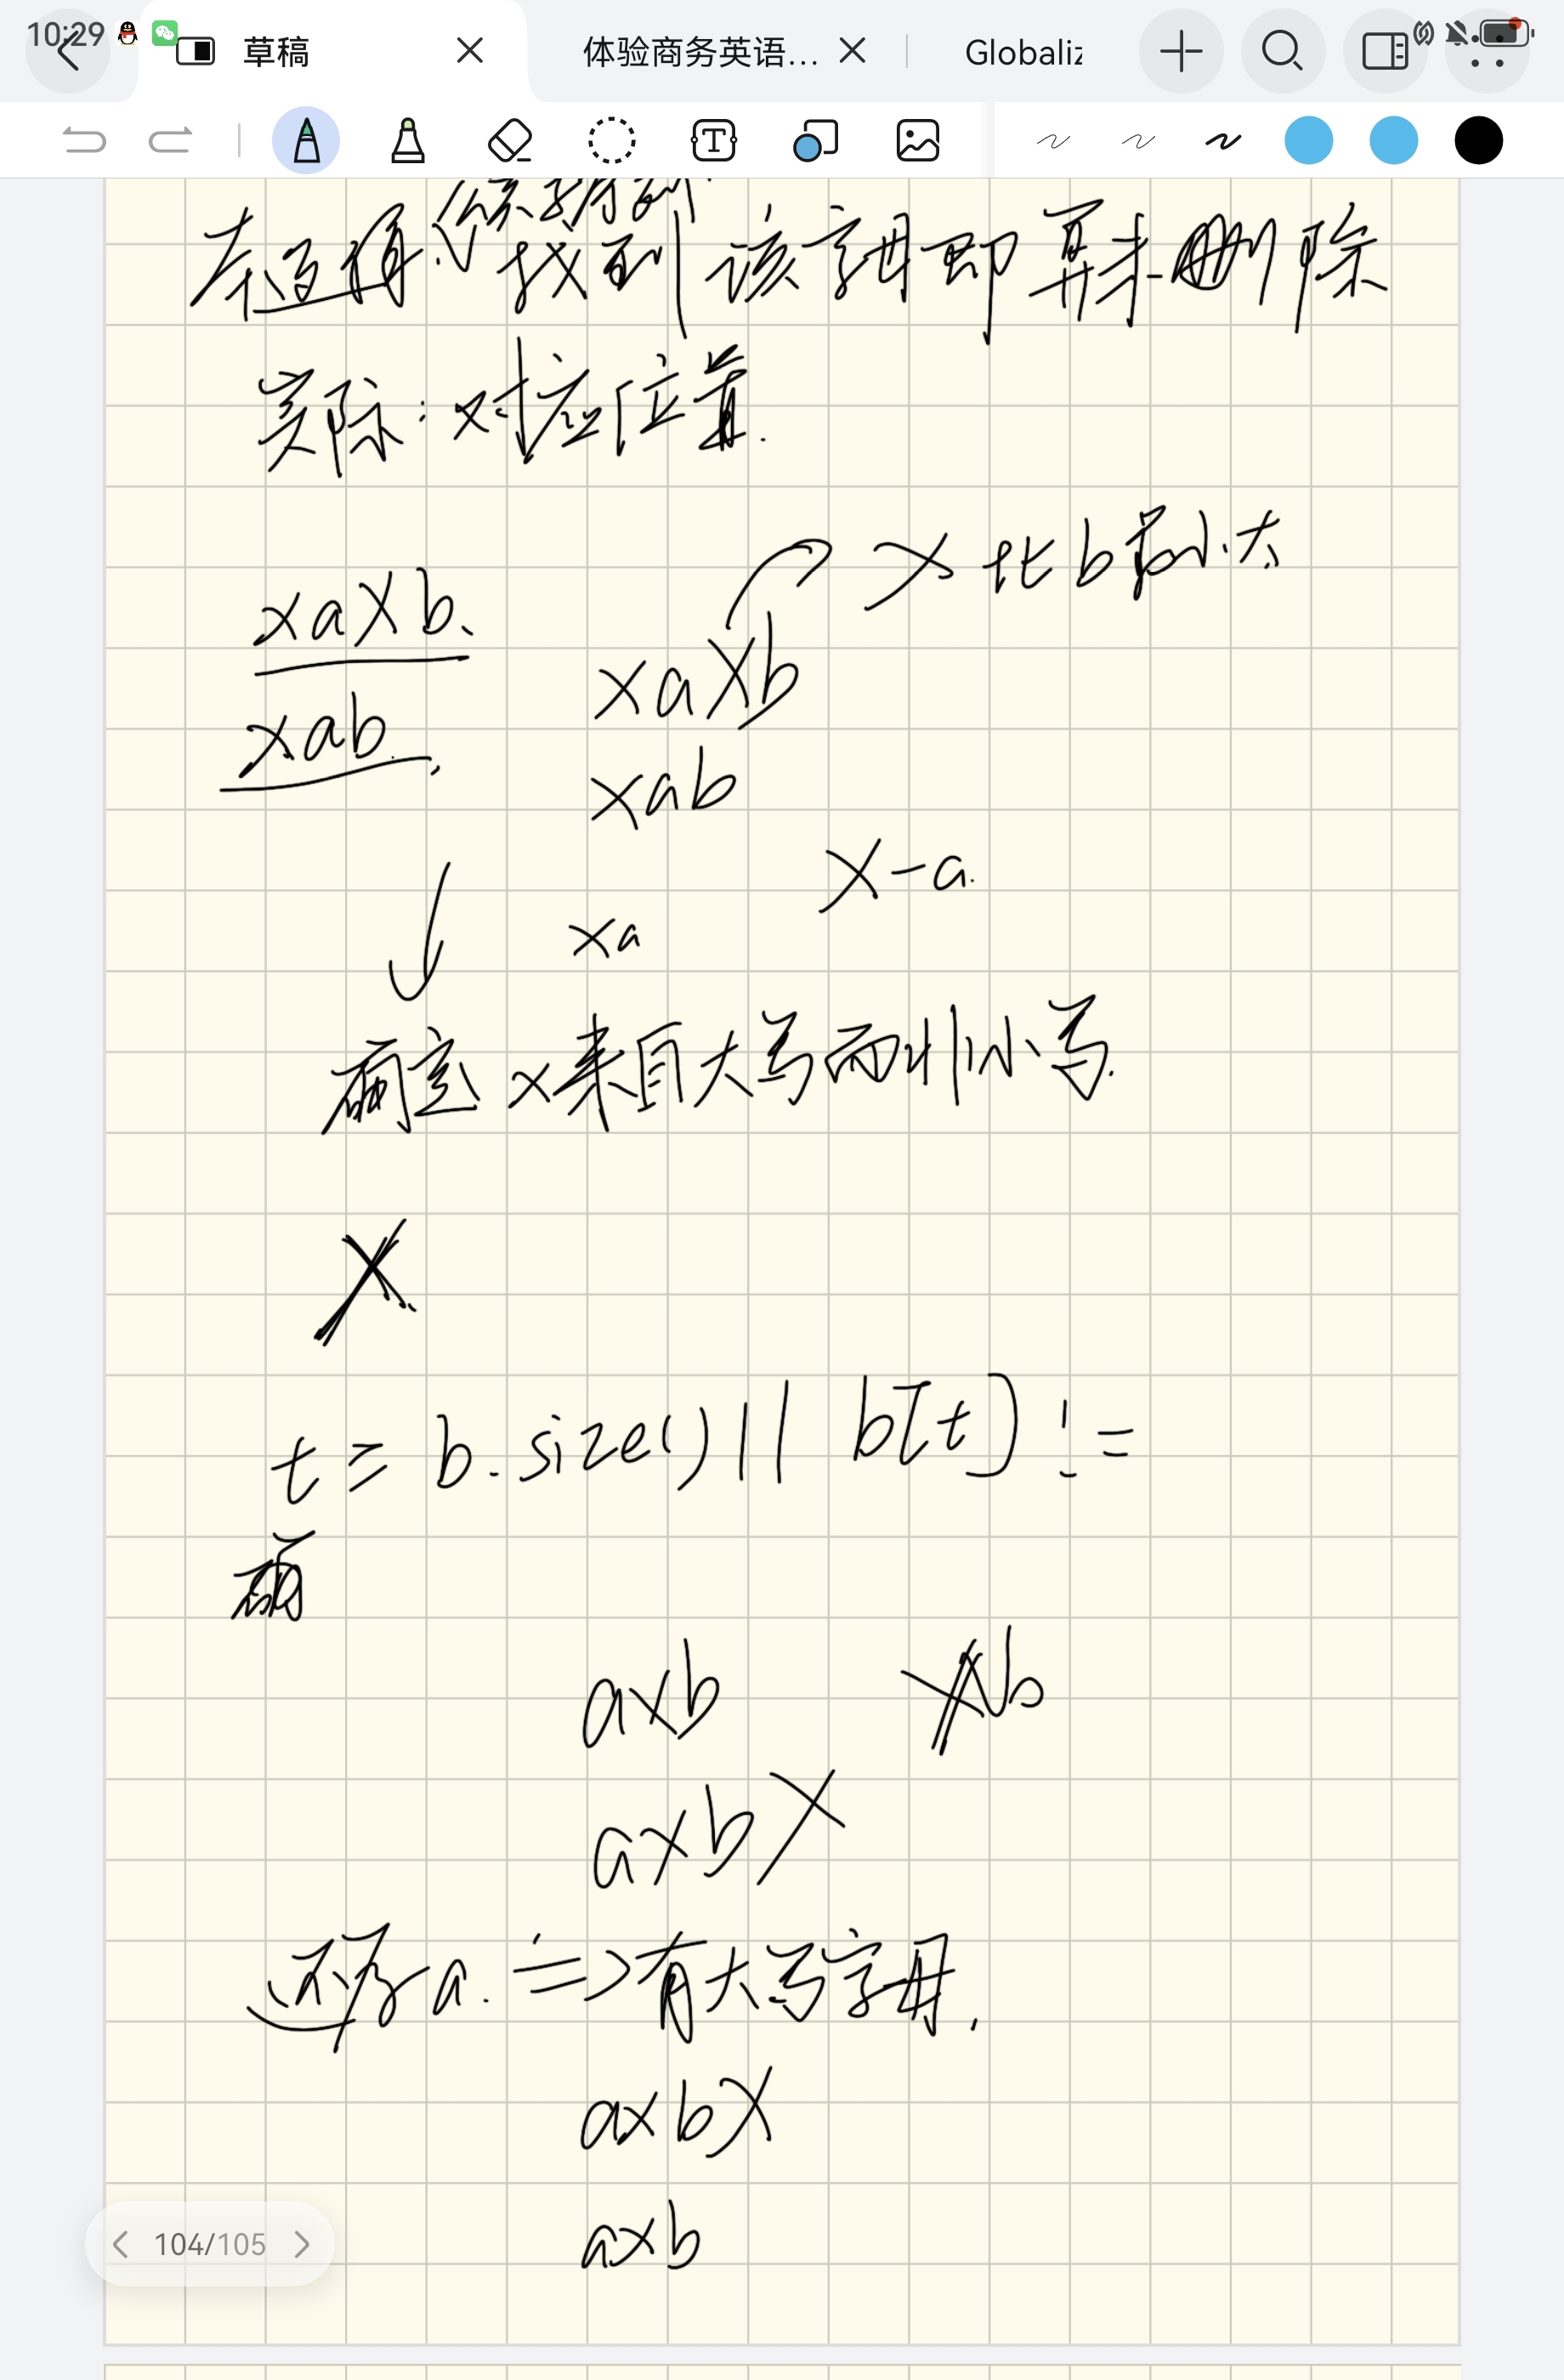 10:29
草稿
体验商务英语...
Globaliz
T
找到该字母即再来删除
实际:对应位置.
X比b都小、大
xaXb
xaXb
xab
xab
X-a.
xa
确定x来自大写而非小写.
X
t = b.size() || b[t] !=
axb
Xb
axbX
还原a. => 有大写字母.
axbX
axb
104/105